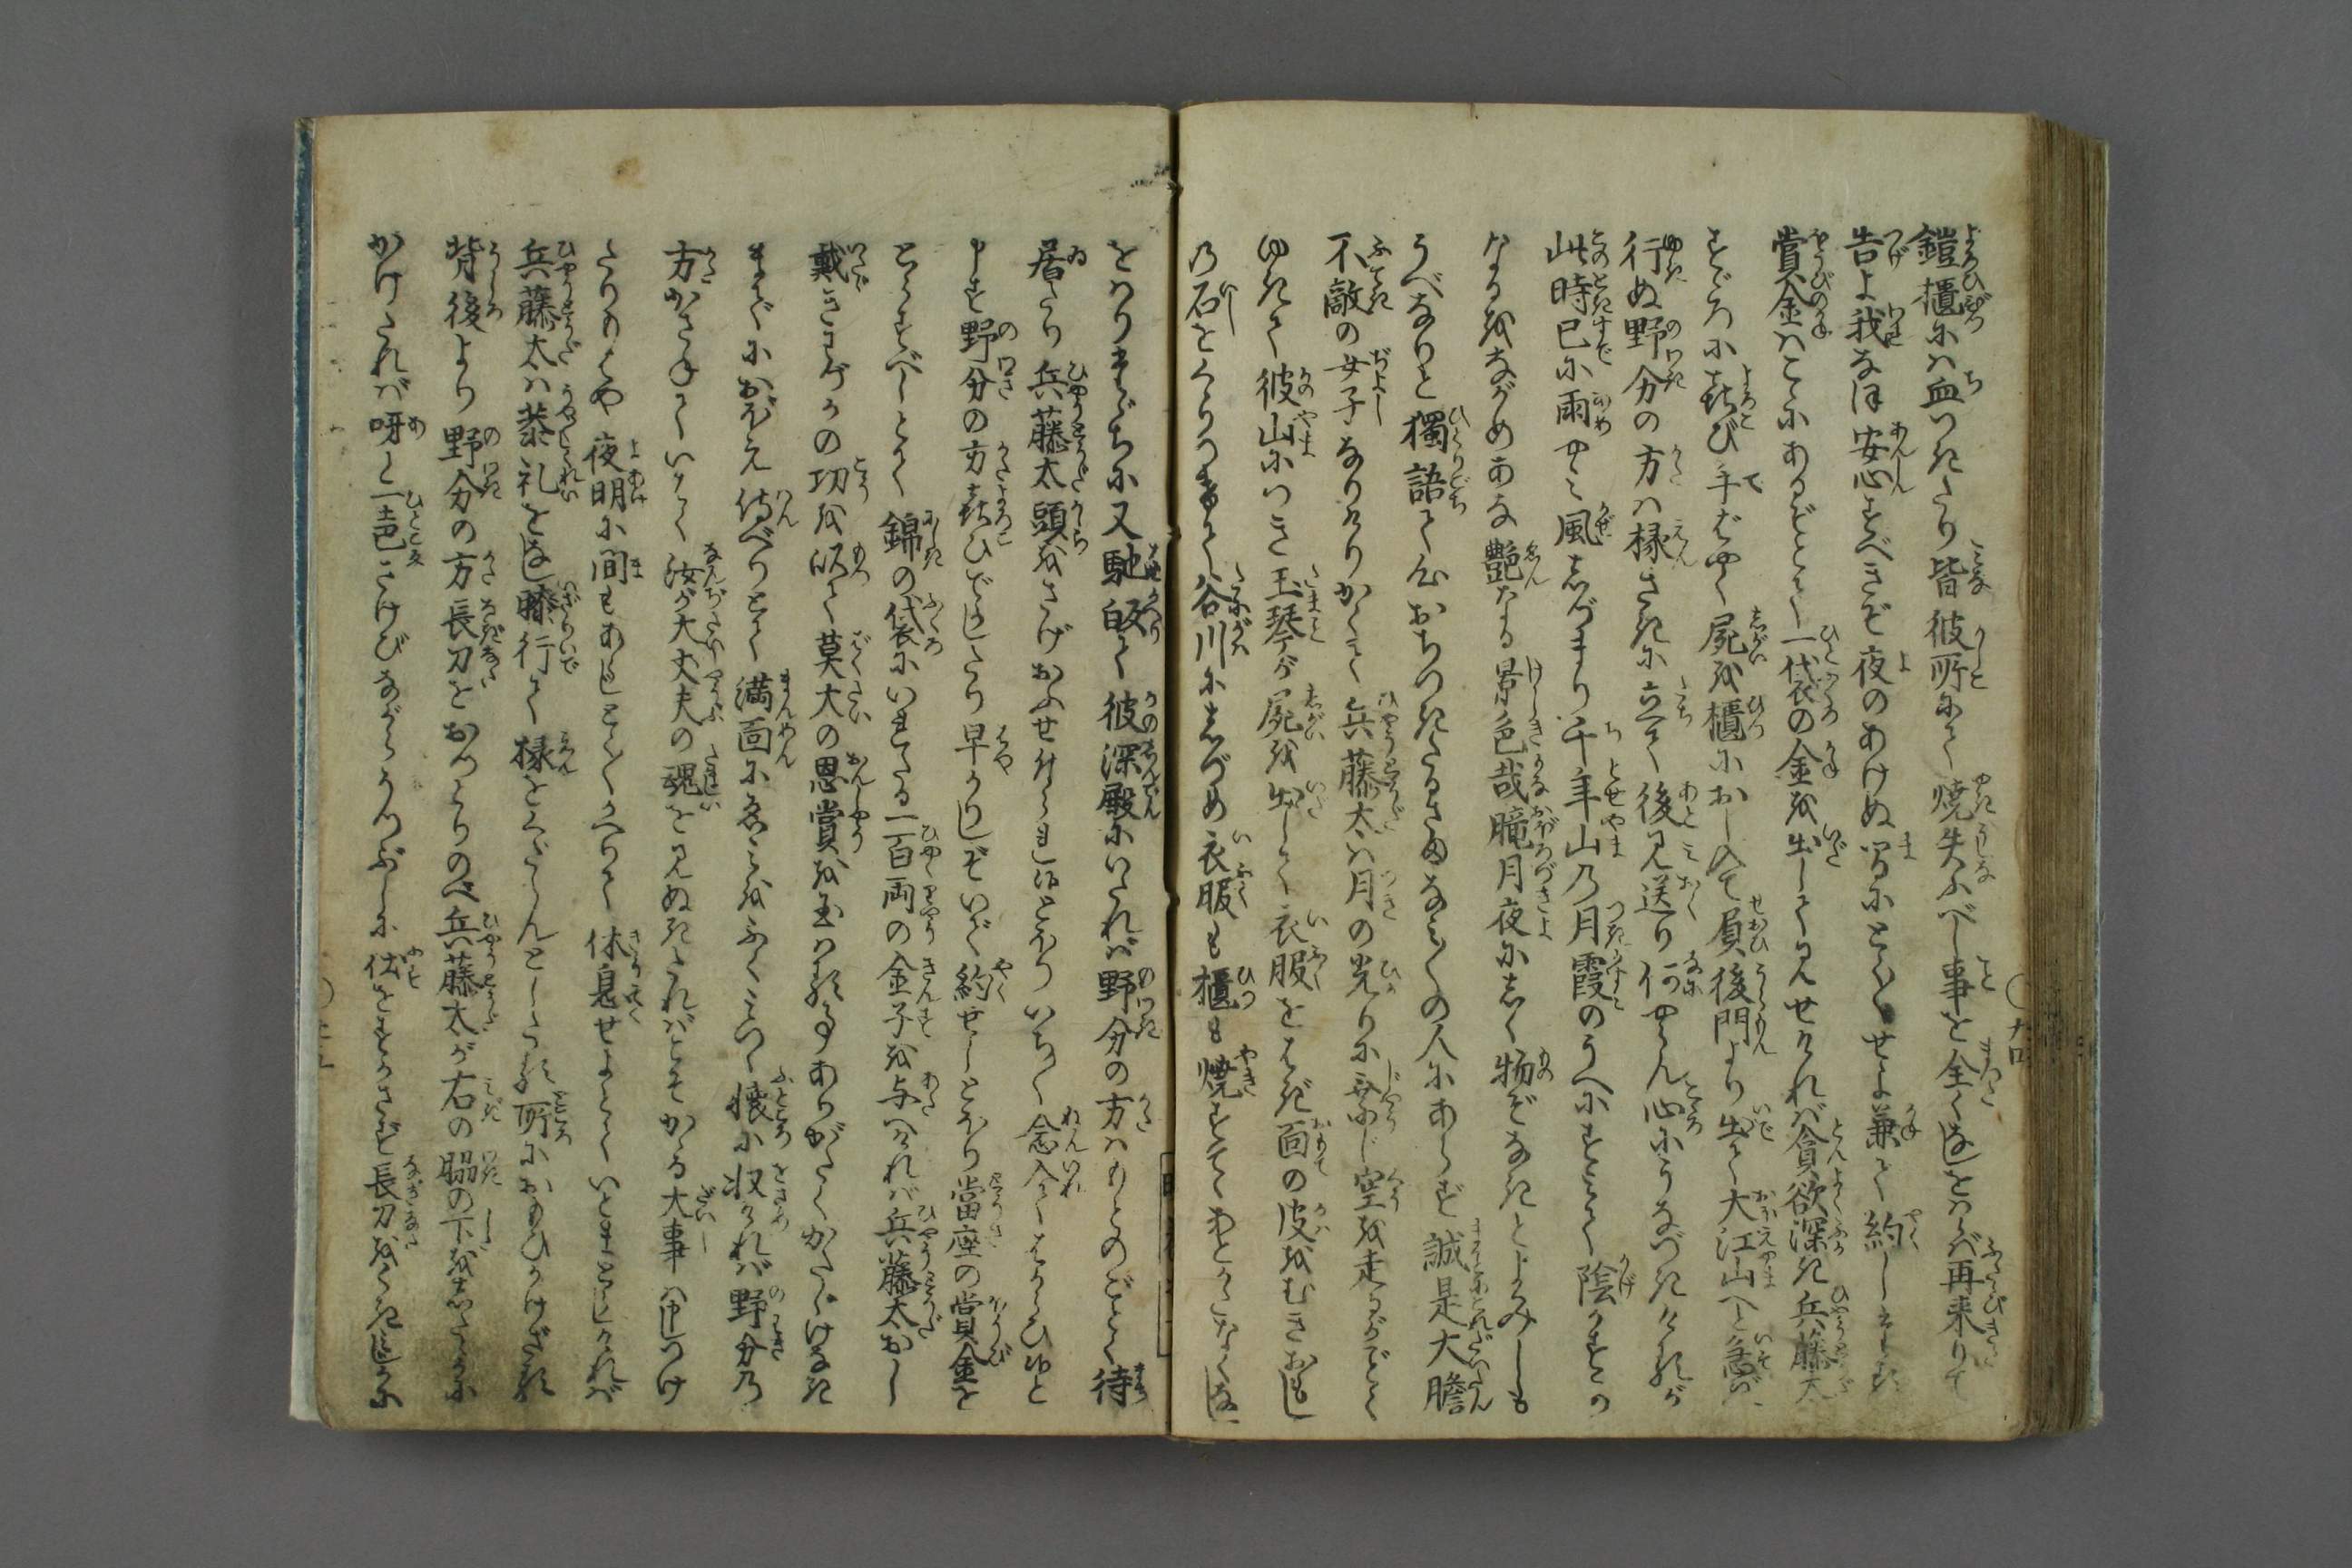 鎧櫃にハ血つきたり皆彼所にて焼失ふべし事を全くなしをハらバ再来りて
告よ我なほ安心すべきぞ夜のあけぬ間にとく〳〵せよ兼て約しまゐらす
賞金ハこゝにあるぞとて一袋の金を出して見せければ貪欲深き兵藤太
すゞろに喜び手ばやく屍を櫃におし入て負後門より出て大江山へと急ぎ
行ぬ野分の方ハ椽さきに立て後見送り何やらん心にうなづきけるが
此時已に雨やミ風しづまり千年山乃月霞のうへにすミて陰かすか
なるをながめあな艶なる景色哉朧月夜にしく物ぞなきとよみしも
うべなりと獨語て心おちつきたるさまなミ〳〵の人にあらず誠是大膽
不敵の女子なりけりかくて兵藤太ハ月の光りに乗じ空を走るがごとく
ゆきて彼山につき玉琴が屍を出して衣服をはぎ面の皮をむきおもし
乃石をくゝりつけて谷川にしづめ衣服も櫃も焼すてゝあとかたなくなし
をハりすぐちに又馳皈て彼深殿にいたれバ野分の方ハもとのごとく待
居たり兵藤太頭をさげおふせけられ候とほりいち〳〵念入てはからひ候と
申す野分の方喜ひでかしたり早かりしぞいで約せしとほり當座の賞金を
とらすべしとて錦の袋にいれたる一百両の金子を与へければ兵藤太おし
戴きわづかの功を以て莫大の恩賞を玉ハる事ありがたくかたじけなき
までにおぼえ侍べりとて満面に笑ミをふくミつゝ懐に収ければ野分乃
方かさねていはく汝が大丈夫の魂を見ぬきたればこそかゝる大事ハ申つけ
たりもはや夜明に間もあらじとく〳〵かへりて休息せよとていとまとらしければ
兵藤太ハ恭礼をなし膝行て椽をくだらんとしたる所におもひかけざる
背後より野分の方長刀をおつとりのべ兵藤太が右の脇の下をしたゝかに
かけたれバ呀と一声さけびながらうつぶしに伏をすかさず長刀をくき返しに